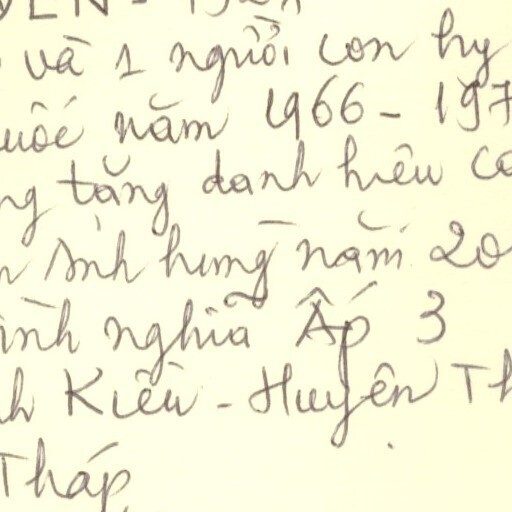 và 1 người con hy
năm 1966 - 197
tặng danh hiệu
Anh hùng năm 20
nghĩa Ấp 3
Kiều - Huyện Th
Tháp